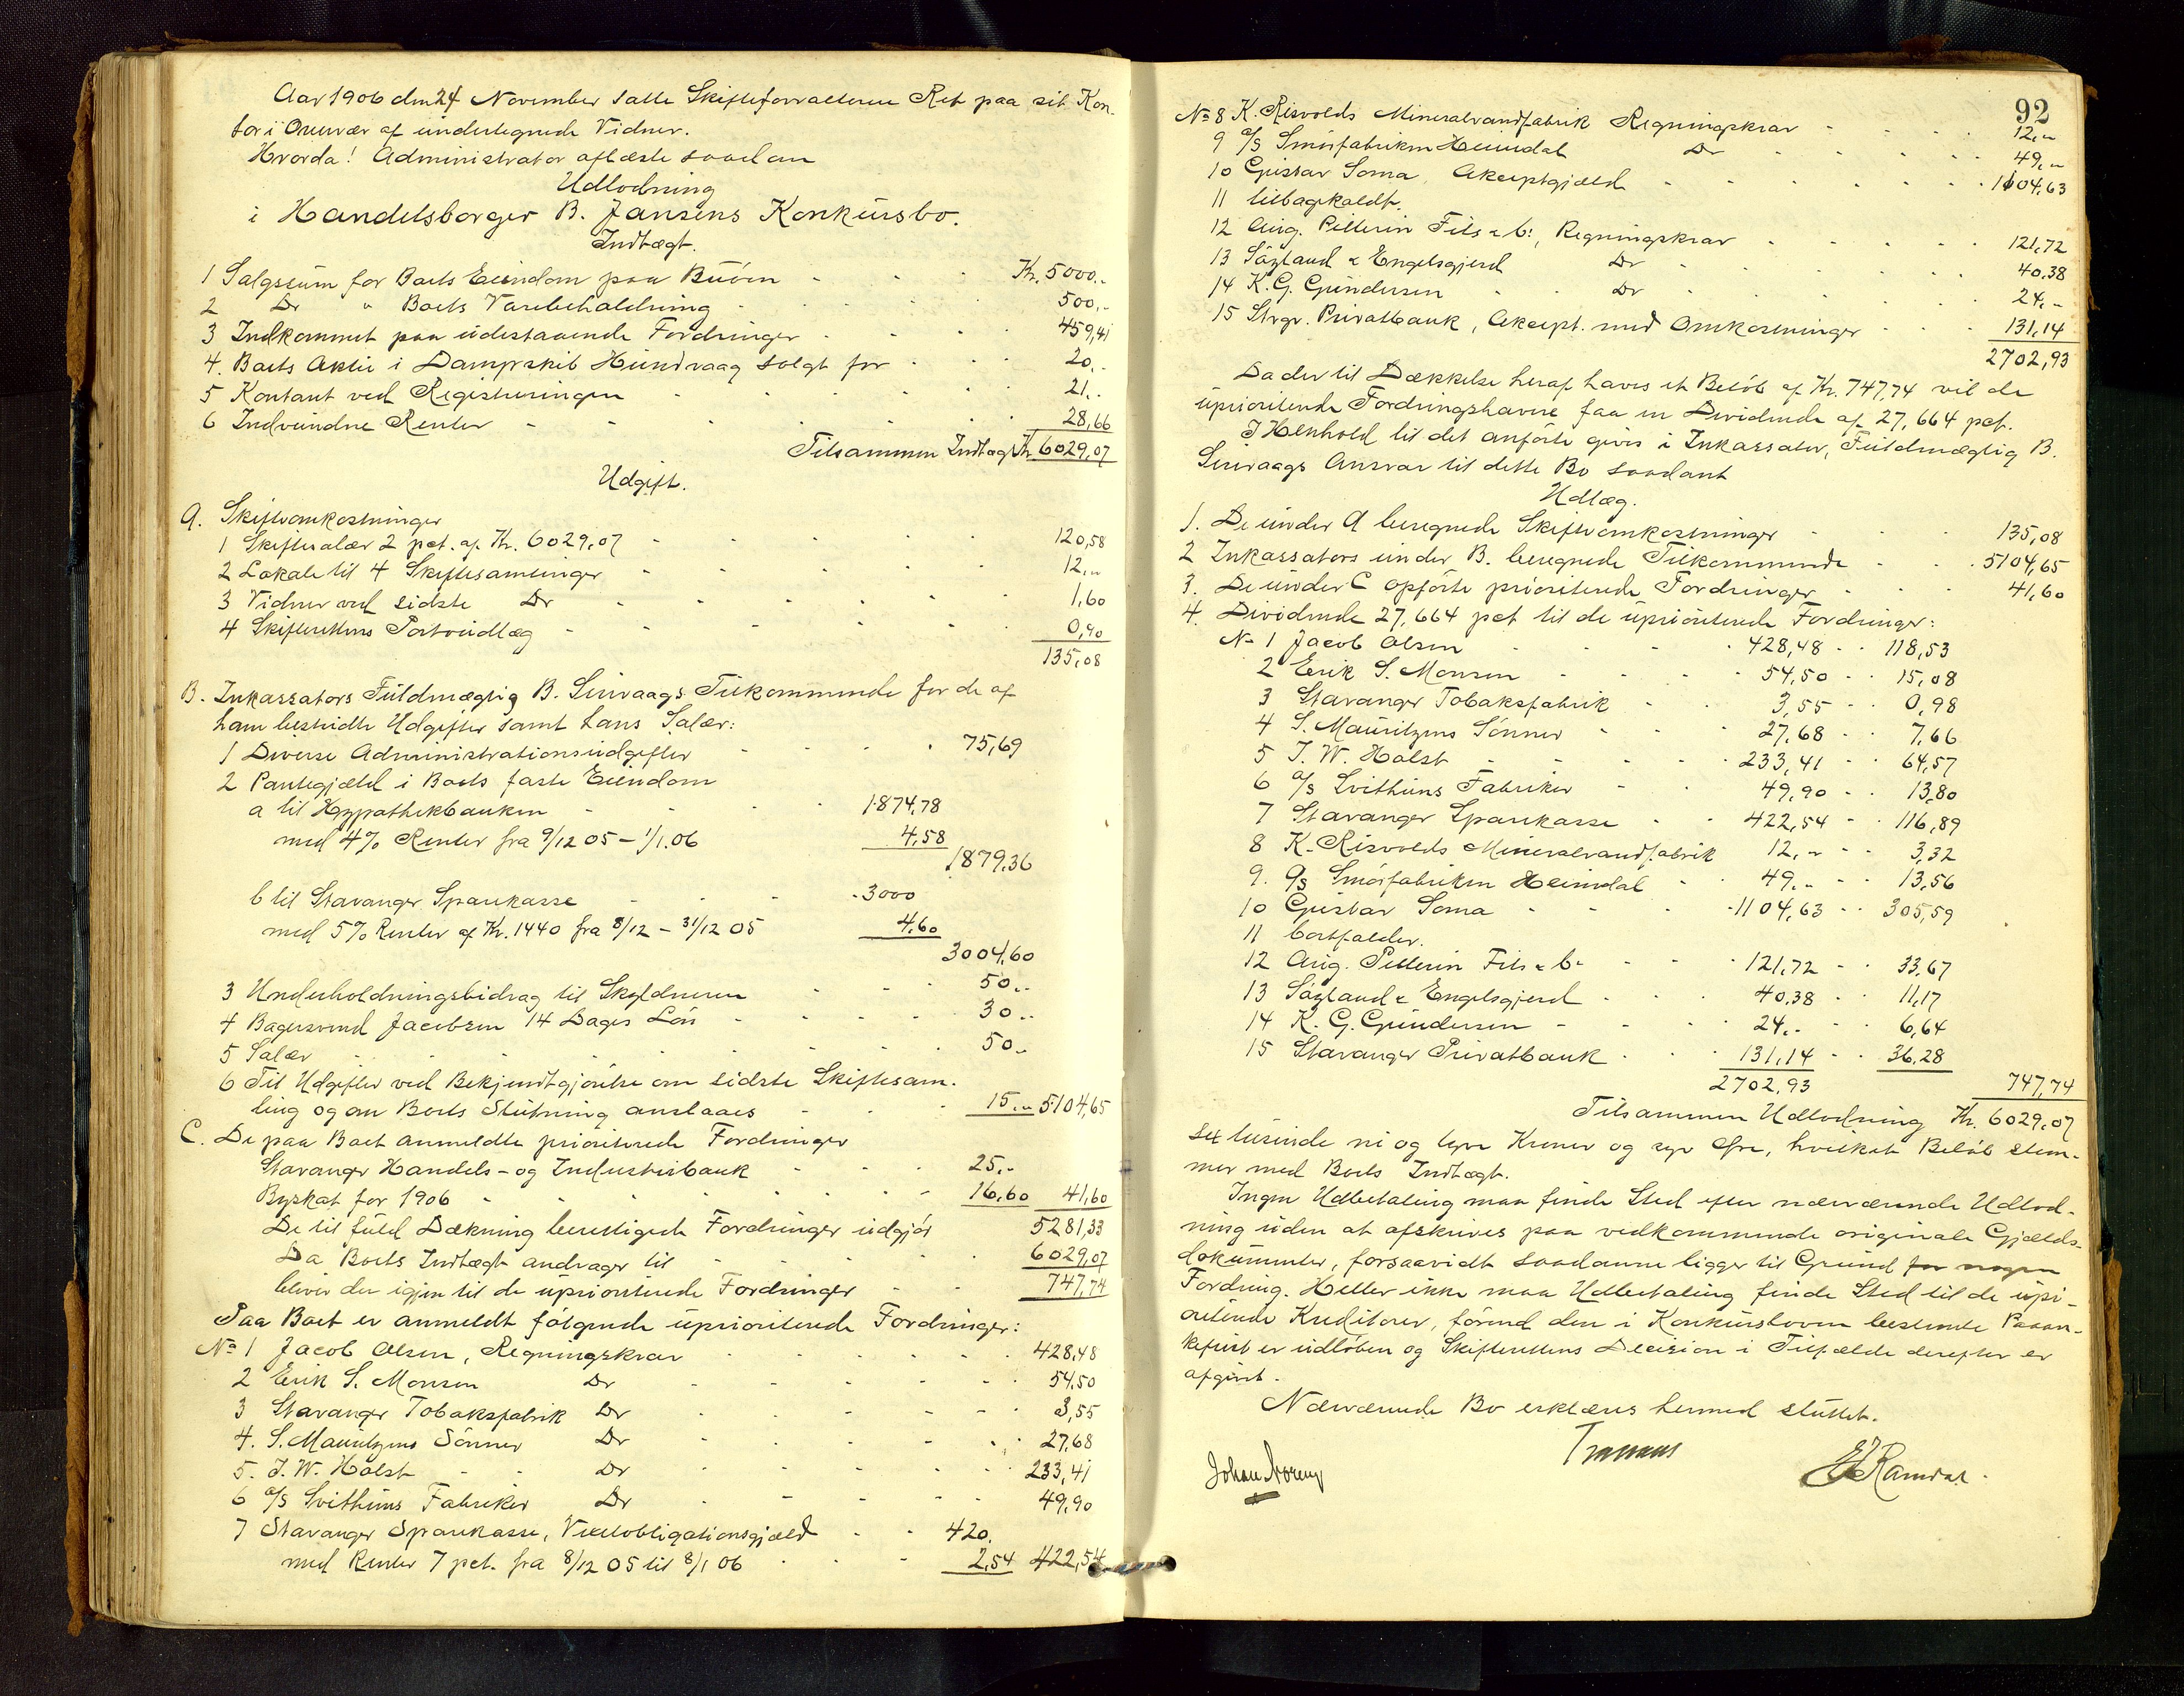 Aar 1906 den 24 November satte Skifteforvalteren Ret paa sit Kon-
tor i Overvær af undertegnede Vidner.
Hvorda! Administrator oplæste saadan
Udlodning
i Handelsborger B. Jansens Konkursbo.
Indtægt.
1 Salgssum for Boets Eiendom paa Buöen - - - Kr. 5000..
2 Do " Boets Varebeholdning - - - 500,-
3 Indkommet paa udestaaende Fordringer - - - 459,41
4. Boets Aktie i Dampskib Hundvaag solgt for - - - 20,-
5 Kontant ved Registreringen - - - 21..
6 Indvundne Renter - - - 28,66
Tilsammen Indtægt Kr 6029,07
Udgift.
A. Skifteomkostninger
1 Skiftesalær 2 pct. af Kr. 6029,07 - - - 120,58
2 Lokale til 4 Skiftesamlinger - - - 12,-
3 Vidner ved sidste Do - - - 1,60
4 Skifterettens Portoudlæg - - - 0,90
135,08
B. Inkassators Fuldmægtig B. Simvaags Tilkommende for de af
ham bestridte Udgifter samt hans Salær:
1 Diverse Administrationsudgifter - - - 75,69
2 Pantegjæld i Boets faste Eiendom
a til Hypothekbanken - - - 1874,78
med 4% Renter fra 9/12 05 - 1/1.06 4,58
1879,36
b til Stavanger Sparekasse - - - 3000
med 5% Renter af Kr. 1440 fra 8/12 - 31/12 05 4,60
3004,60
3 Underholdningsbidrag til Skyldneren - - - 50..
4 Bagersvend Jacobsen 14 Dages Løn - - - 30..
5 Salær - - - 50..
6 Til Udgifter ved Bekjendtgjörelse om sidste Skiftesam-
ling og om Boets Slutning anslaaes - - - 15,- 5104,65
C. De paa Boet anmeldte prioriterede Fordringer
Stavanger Handels- og Industribank - - - 25,-
Byskat for 1906 - - - 16,60 41,60
De til fuld Dækning berettigede Fordringer udgjör 5281,33
Da Boets Indtægt andrager til - - - 6029,07
bliver der igjen til de uprioriterede Fordringer - - - 747,74
Paa Boet er anmeldt fölgende uprioriterede Fordringer:
No 1 Jacob Olsen, Regningskrav - - - 428,48
2 Erik S. Monsen Do - - - 54,50
3 Stavanger Tobaksfabrik Do - - - 3,55
4. S. Mauritzens Sönner Do - - - 27,68
5. J. W. Holst - - Do - - - 233,41
6 a/s Svithuns Fabriker Do - - - 49,90
7 Stavanger Sparekasse, Vexelobligationsgjæld - - 420.
med Renter 7 pct. fra 8/12 05 til 8/1 06 - - - 2,54 422,54
92
No 8 K. Risvolds Mineralvandfabrik Regningskrav - - - 12,-
9 a/s Smörfabriken Heimdal Do - - - 49,-
10 Gustav Soma, Akceptgjæld - - - 1104,63
11 tilbagekaldt.
12 Aug. Pellerin Fils & Co:, Regningskrav - - - 121,72
13 Söyland & Engelsgjerd Do - - - 40,38
14 K. G. Gundersen - - Do - - - 24,-
15 Stvgr. Privatbank, Akcept. med Omkostninger - - - 131,14
2702,93
Da der til Dækkelse heraf haves et Belöb af Kr. 747,74 vil de
uprioriterede Fordringshavere faa en Dividende af 27,664 pct.
I Henhold til det anförte gives i Inkassator, Fuldmægtig B.
Simvaags Ansvar til dette Bo saadant
Udlæg.
1. De under A beregnede Skifteomkostninger - - - 135,08
2 Inkassators under B. beregnede Tilkommende - - - 5104,65
3. De under C opförte prioriterede Fordringer - - - 41,60
4. Dividende 27,664 pct til de uprioriterede Fordringer:
No 1 Jacob Olsen - - - 428,48 - - 118,53
2 Erik S. Monsen - - - 54,50 - - 15,08
3 Stavanger Tobaksfabrik - - 3,55 - - 0,98
4 S. Mauritzens Sönner - - 27,68 - - 7,66
5 J. W. Holst - - - 233,41 - - 64,57
6 a/s Svithuns Fabriker - - 49,90 - - 13,80
7 Stavanger Sparekasse - - 422,54 - - 116,89
8 K. Risvolds Mineralvandfabrik 12,- - - 3,32
9. a/s Smörfabriken Heimdal - 49,- - - 13,56
10 Gustav Soma - - - 1104,63 - - 305,59
11 bortfalder.
12 Aug. Pellerin Fils & Co - - - 121,72 - - 33,67
13 Söyland & Engelsgjerd - - - 40,38 - - 11,17
14 K. G. Gundersen - - - 24,- - - 6,64
15 Stavanger Privatbank - - - 131,14 - - 36,28
2702,93 747,74
Tilsammen Udlodning Kr. 6029,07
sex tusinde ni og tyve Kroner og syv Øre, hvilket Belöb stem-
mer med Boets Indtægt.
Ingen Udbetaling maa finde Sted efter nærværende Udlod-
ning uden at afskrives paa vedkommende originale Gjælds-
dokumenter, forsaavidt saadanne ligger til Grund for nogen
Fordring. Heller ikke maa Udbetaling finde Sted til de upri-
oriterede Kreditorer, förend den i Konkursloven bestemte Paaan-
kefrist er udlöben og Skifterettens Decision i Tilfælde derefter er
afgivet.
Nærværende Bo erklæres hermed sluttet.
Johan Noreng